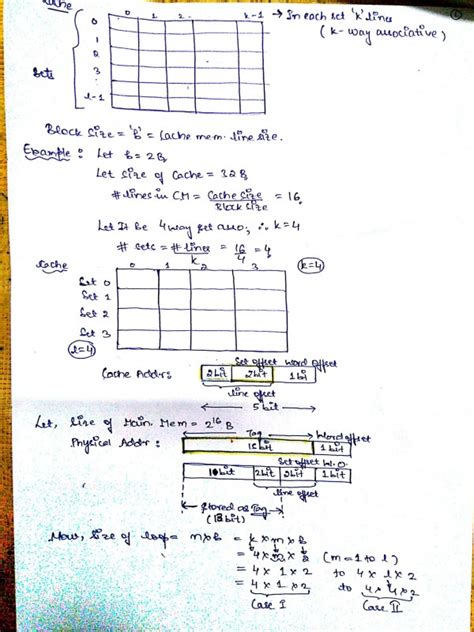 Cache
0 1 2 .. k-1 → In each set 'k' lines
(k-way associative)
Sets
0
1
2
3
l-1
Block Size = 'b' = Cache mem. line size.
Example : Let b = 2B,
Let size of Cache = 32B
# lines in CM = Cache Size / Block Size = 16.
Let It be 4 way set asso; ∴ k=4
# sets = # lines / k = 16/4 = 4
Cache 0 1 2 3 (k=4)
Set 0
Set 1
Set 2
Set 3
(l=4)
Set offset Word Offset
Cache Addr: 2bit 2bit 1bit
line offset
5 bit
Let, Size of Main. Mem = 2^16 B
Physical Addr : Tag Word offset
15bit 1 bit
Set offset W.O.
10bit 2bit 2bit 1bit
line offset
Stored as Tag
Now, Size of loop = m×b = k × m × b
= 4 × m × 2 (m = 1 to l)
= 4 × 1 × 2 to 4 × l × 2
= 4 × 1 × 2 to 4 × 4 × 2
Case I Case II